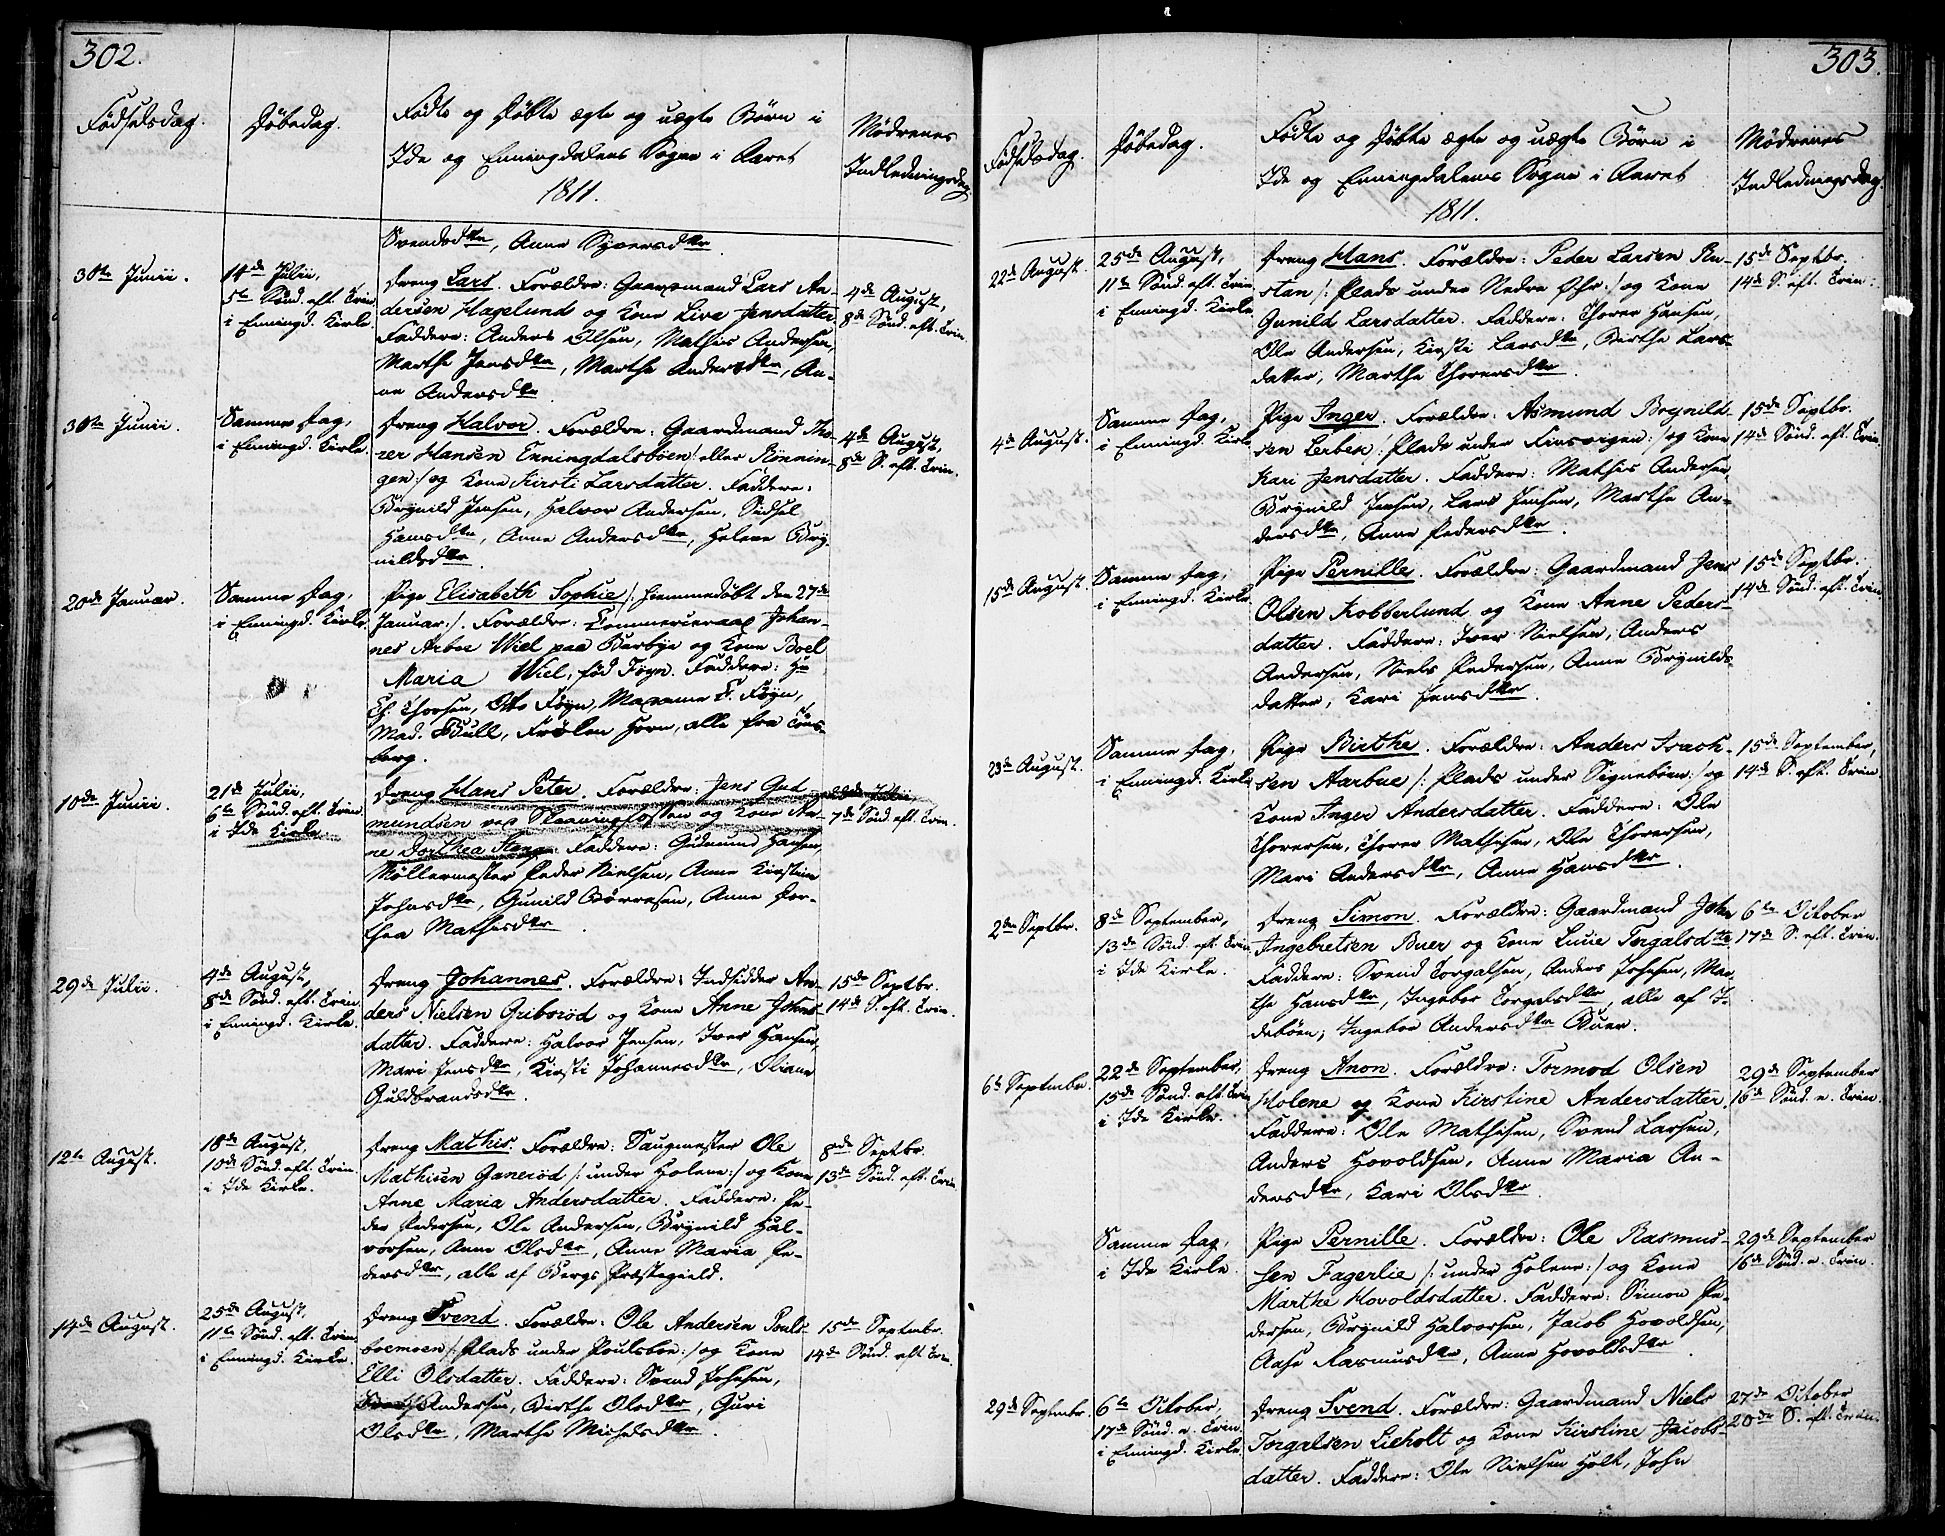 302.
Födselsdag.
Döbedag.
Födte og Döbte ægte og uægte Börn i
Ide og Enningdalens Sogne i Aaret
1811.
Mödrenes
Indledningsdag
Svendsdttr, Anne Syversdttr.
30te Junii.
14de Julii,
5te Sönd. eft. Trin.
i Enningd. Kirke.
Dreng Lars. Forældre: Gaardmand Lars An-
dersen Hagelund og Kone Live Jensdatter
Faddere: Anders Olsen, Mathis Andersen,
Marthe Jensdttr, Marthe Andersdttr, An-
ne Andersdttr.
4de August,
8de Sönd. eft. Trin.
30te Junii.
Samme Dag,
i Enningd. Kirke.
Dreng Halvor. Forældre: Gaardmand Tho-
rer Hansen Enningdalsböen /: eller Rönnin-
gen :/ og Kone Kirsti Larsdatter. Faddere:
Brynild Jensen, Halvor Andersen, Sidsel
Hansdttr, Anne Andersdttr, Helene Bry-
nildsdttr.
4de August,
8de S. eft. Trin.
20de Januar.
Samme Dag,
i Enningd. Kirke.
Pige Elisabeth Sophie /: hjemmedöbt den 27de
Januar :/. Forældre: Commerceraad Johan-
nes Arboe Wiel paa Berbye og Kone Boel
Maria Wiel, föd Föyn. Faddere: Hr
Th. Thorsen, Otto Föyn, Madame F. Föyn,
Mad. Bull, Fröken Horn, alle fra Töns-
berg.
10de Junii
21de Julii,
6te Sönd. eft. Trin.
i Ide Kirke.
Dreng Hans Peter. Forældre: Jens Gud-
mundsen ved Skaaningfossen og Kone An-
ne Dorthea Stang. Faddere: Gudmund Hansen,
Möllermester Peder Nielsen, Anne Kirstine
Johnsdttr, Gunild Börresen, Anne Dor-
thea Mathisdttr.
7de Sönd. eft. Trin.
29de Julii.
4de August,
8de Sönd. eft. Trin.
i Enningd. Kirke.
Dreng Johannes. Forældre: Indsidder An-
ders Nielsen Griboröd og Kone Anne Johns-
datter. Faddere: Halvor Jensen, Iver Hansen,
Mari Jensdttr, Kirsti Johannesdttr, Oliane
Guldbrandsdttr.
15de Septbr.
14de S. eft. Trin.
12te August.
18de August,
10de Sönd. eft. Trin.
i Ide Kirke.
Dreng Mathis. Forældre: Saugmester Ole
Mathisen Ganeröd /: under Holene :/ og Kone
Anne Maria Andersdatter. Faddere: Pe-
der Pedersen, Ole Andersen, Brynild Hal-
vorsen, Anne Olsdttr, Anne Maria Pe-
dersdttr, alle af Bergs Præstegield.
8de Septbr.
13de Sönd. eft. Trin.
14de August.
25de August,
11te Sönd. eft. Trin.
i Enningd. Kirke.
Dreng Svend. Forældre: Ole Andersen Pouls-
boemoen /: Plads under Poulsboe :/ og Kone
Elli Olsdatter. Faddere: Svend Johnsen,
Andersen, Birthe Olsdttr, Guri
Olsdttr, Marthe Michelsdttr.
15de Septembr.
14de Sönd. eft. Trin.
303.
Födselsdag.
Döbedag.
Födte og Döbte ægte og uægte Börn i
Ide og Enningdalens Sogne i Aaret
1811.
Mödrenes
Indledningsdag.
22de August.
25de August,
11te Sönd. eft. Trin.
i Enningd. Kirke.
Dreng Hans. Forældre: Peder Larsen Ru-
stan /: Plads under Nedre Öhr :/ og Kone
Gunild Larsdatter. Faddere: Thorer Hansen,
Ole Andersen, Kirsti Larsdttr, Birthe Lars-
datter, Marthe Thorersdttr.
15de Septbr.
14de S. eft. Trin.
4de August.
Samme Dag,
i Enningd. Kirke.
Pige Inger. Forældre: Asmund Brynild-
sen Lerbek /: Plads under Kirsvigen :/ og Kone
Kari Jensdatter. Faddere: Mathis Andersen,
Brynild Jensen, Lars Jensen, Marthe An-
dersdttr, Anne Pedersdttr.
15de Septbr.
14de Sönd. eft. Trin.
15de August.
Samme Dag,
i Enningd. Kirke.
Pige Pernille. Forældre: Gaardmand Jens
Olsen Kobberlund og Kone Anne Peders-
datter. Faddere: Iver Nielsen, Anders
Andersen, Niels Pedersen, Anne Brynilds-
datter, Kari Jensdttr.
15de Septbr.
14de Sönd. eft. Trin.
23de August.
Samme Dag,
i Enningd. Kirke
Pige Birthe. Forældre: Anders Isach-
sen Aarbue /: Plads under Signeböen :/ og
Kone Inger Andersdatter. Faddere: Ole
Thorersen, Thorer Mathisen, Ole Thorersen,
Mari Andersdttr, Anne Hansdttr.
15de September,
14de S. eft. Trin.
2den Septbr.
8de September,
13de Sönd. eft. Trin.
i Ide Kirke.
Dreng Simon. Forældre: Gaardmand John
Ingebretsen Buer og Kone Lucie Torgalsdttr
Faddere: Svend Torgalsen, Anders Johnsen, Mar-
the Hansdttr, Ingebor Torgalsdttr, alle af I-
deböen; Ingebor Andersdttr Buer.
6te October
17de S. eft. Trin.
6te September.
22de September,
15de Sönd. eft. Trin.
i Ide Kirke.
Dreng Anon. Forældre: Tormod Olsen
Holene og Kone Kirstine Andersdatter.
Faddere: Ole Mathisen, Svend Larsen,
Anders Hovoldsen, Anne Maria An-
dersdttr, Kari Olsdttr.
29de September
16de Sönd. e. Trin.
Samme Dag,
i Ide Kirke.
Pige Pernille. Forældre: Ole Rasmus-
sen Fagerlie /: under Holene :/ og Kone
Marthe Hovoldsdatter. Faddere: Simon Pe-
dersen, Brynild Halvorsen, Jacob Hovoldsen,
Aase Rasmusdttr, Anne Hovoldsdttr.
29de September
16de Sönd. e. Trin.
29de Septembr.
6te October,
17de Sönd. e. Trin.
i Enningd. Kirke.
Dreng Svend. Forældre: Gaardmand Niels
Torgalsen Lieholt og Kone Kirstine Jacobs-
datter. Faddere: Ole Nielsen Holt, John
27de October
20de S. eft. Trin.